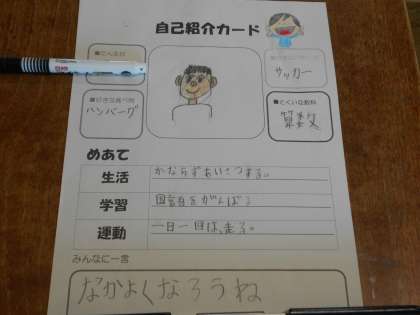 自己紹介カード
サッカー
■好きな食べ物
ハンバーグ
■とくいな教科
算数
めあて
生活
かならずあいさつする。
学習
国語をがんばる
運動
一日一回は、走る。
みんなに一言
なかよくなろうね